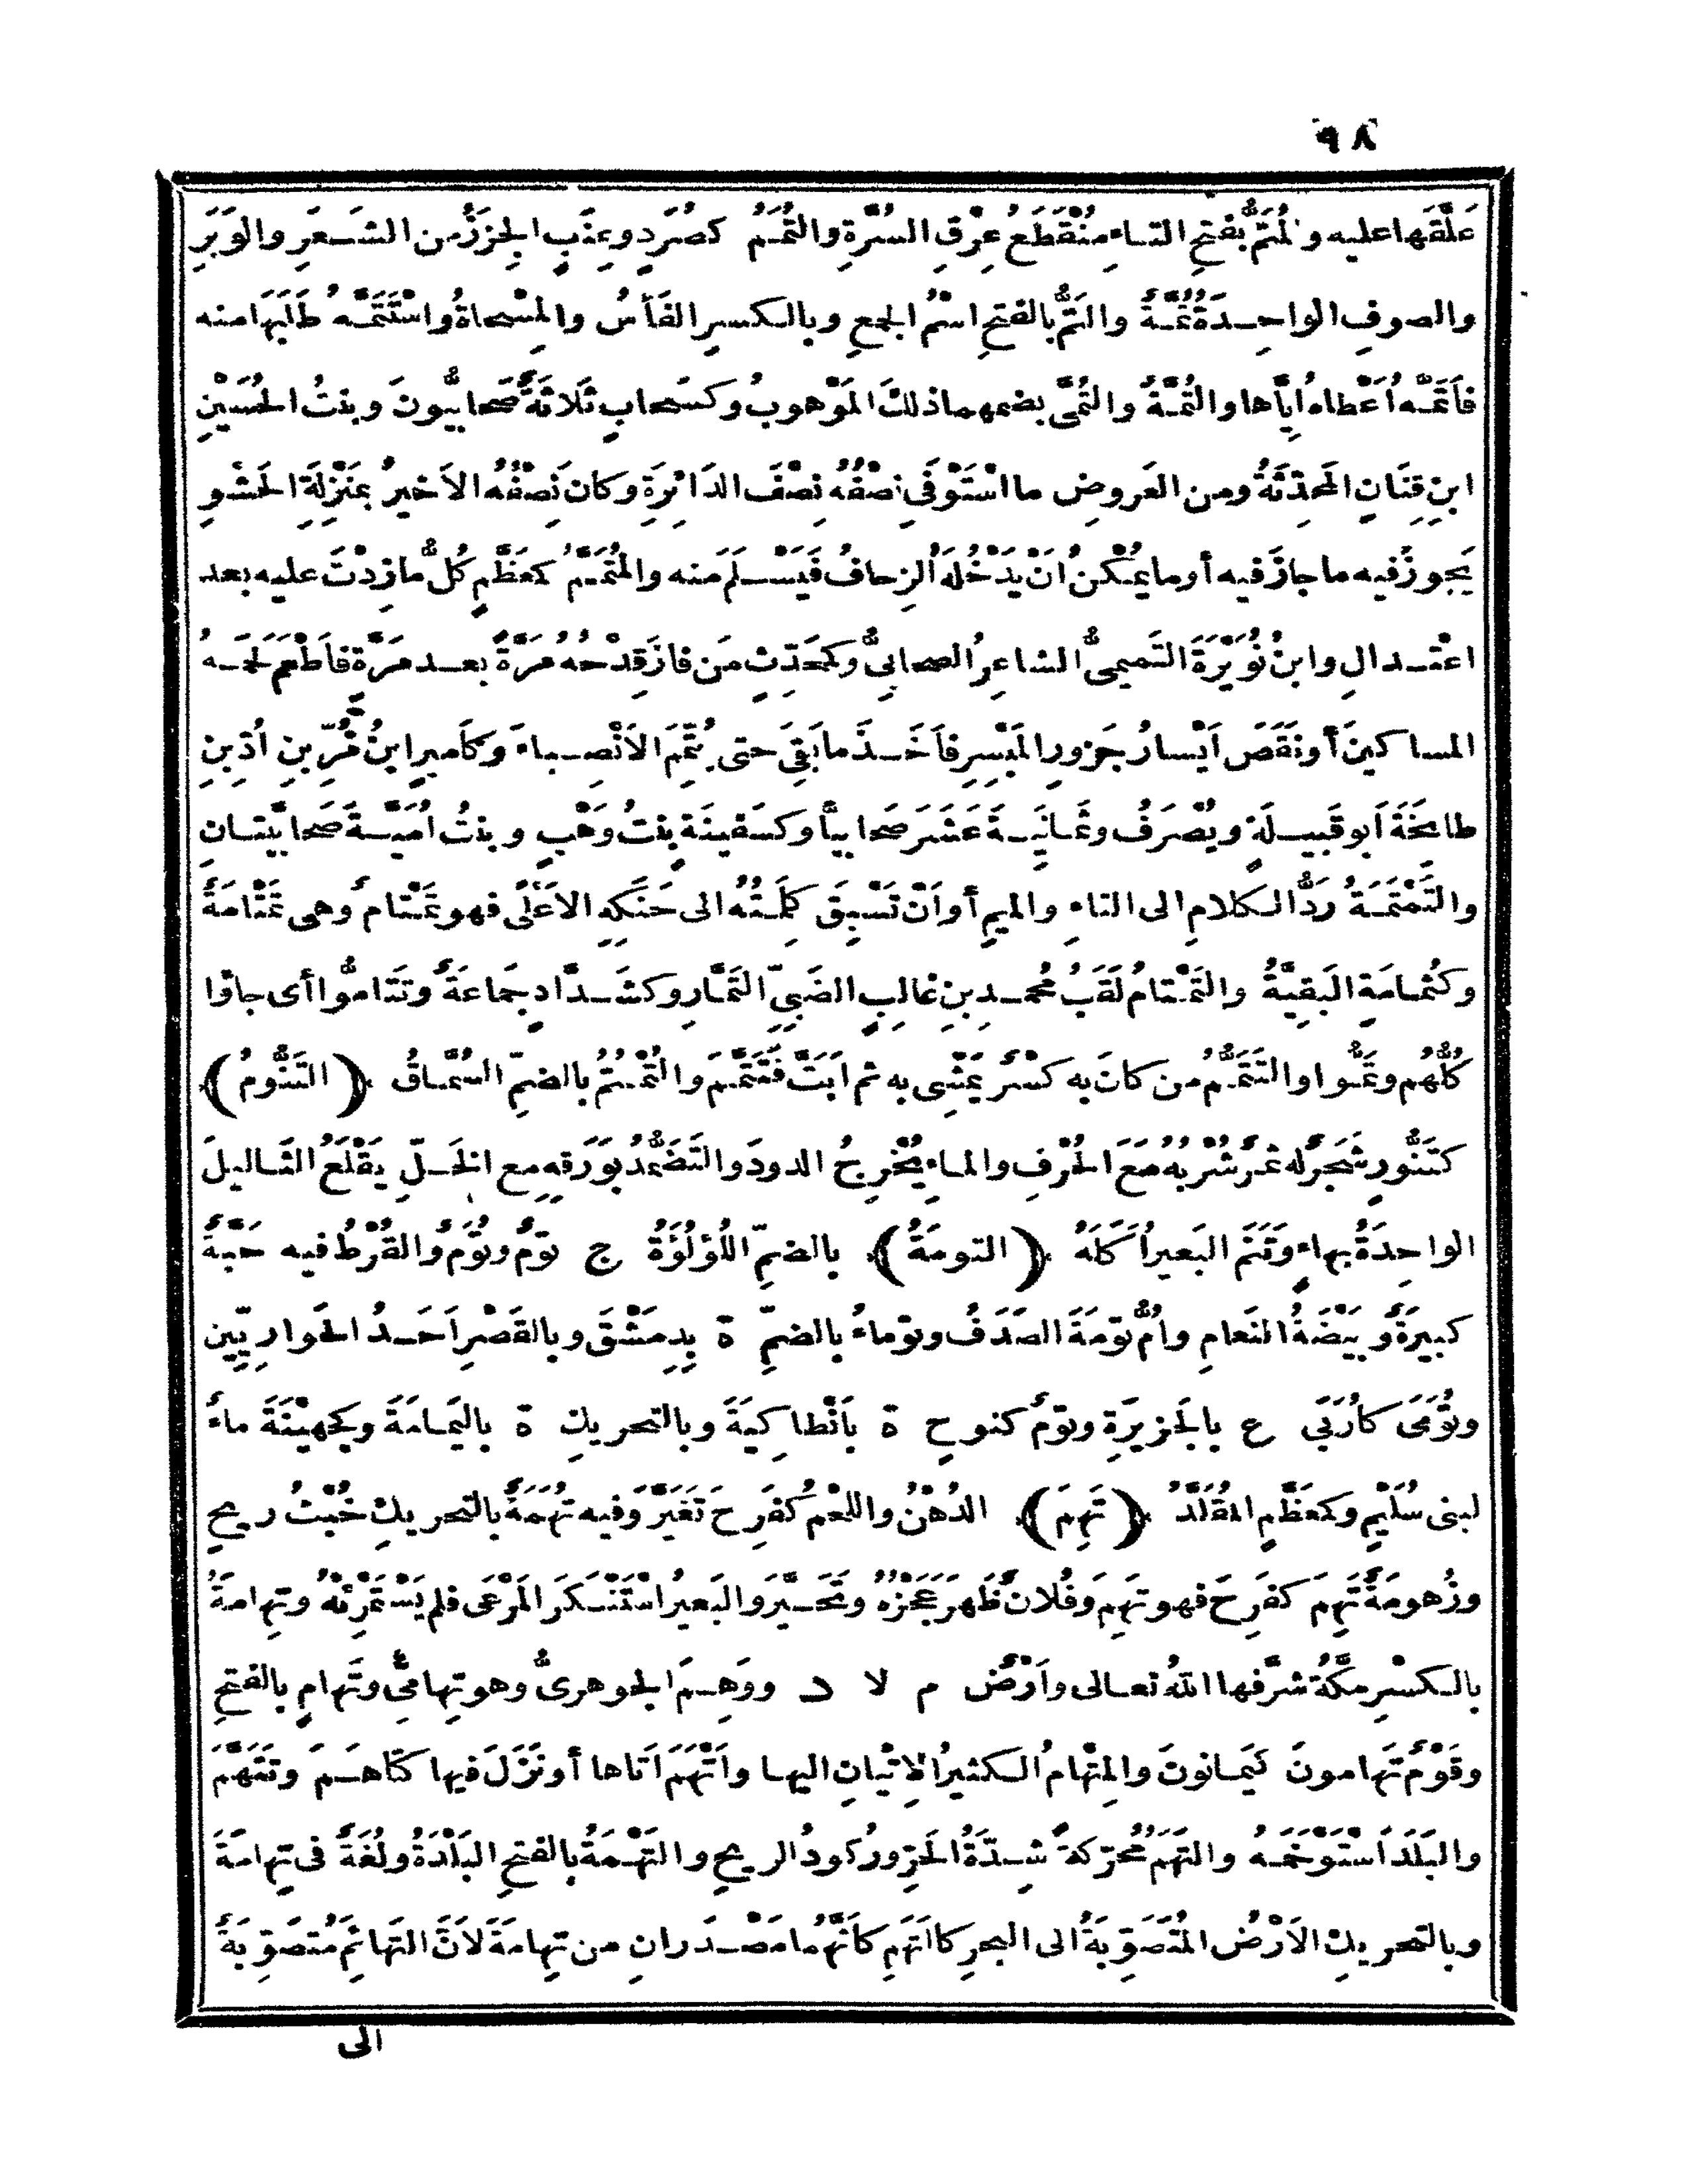 ٩٨
عَلَّقَها عليه والمُتَمُّ بفتحِ التاءِ مُنْقَطَعُ عِرْقِ السُّرَّةِ والتُّمَمُ كصُرَدٍ وعِنَبٍ الجِزَزُ من الشَّعَرِ والوَبَرِ
والصوفِ الواحِدَةُ تُمَّةٌ والتَّمُّ بالفتحِ اسْمُ الجمعِ وبالكسرِ الفَأسُ والمِسْحاةُ واسْتَتَمَّهُ طَلَبَها منه
فأَتَمَّهُ أعْطاهُ إيَّاها والتُّمَّةُ والتُّمَّى بضمهما ذلكَ المَوْهوبُ وكسَحابٍ ثَلاثَةٌ صَحابيُّونَ وبنتُ الحُسَيْنِ
ابنِ قِنَانٍ المحدِّثَةُ ومن العَروضِ ما اسْتَوْفَى نِصْفُهُ نِصْفَ الدائِرَةِ وكان نِصْفُهُ الأخيرُ بمَنْزِلَةِ الحَشْوِ
يَجوزُ فيه ما جازَ فيه أو ما يُمْكِنُ أنْ يَدْخُلَهُ الزِحافُ فَيَسْلَمَ منه والمُتَمَّمُ كمعَظَّمٍ كُلُّ ما زِدْتَ عليه بعد
اعْتِدالٍ وابنُ نُوَيْرَةَ التَميمىُّ الشاعِرُ الصحابىُّ وكمحَدِّثٍ مَن فازَ قِدْحُهُ مَرَّةً بعدَ مَرَّةٍ فأَطْعَمَ لَحْمَهُ
المساكينَ أو نَقَصَ أيْسارُ جَزورِ المَيْسِرِ فأَخَذَ ما بَقِىَ حتى يُتَمِّمَ الأنْصِباءَ وكأميرٍ ابنُ مُرِّ بنِ أُدِّ بنِ
طابِخَةَ أبو قَبيلَةٍ ويُصْرَفُ وثمانِيَةَ عَشَرَ صحابيًّا وكسَفينَةٍ بِنْتُ وَهْبٍ وبنتُ أُمَيَّةَ صَحابيَّتانِ
والتَّمْتَمَةُ رَدُّ الكلامِ الى التاءِ والميمِ أو أنْ تَسْبِقَ كَلِمَتُهُ الى حَنَكِهِ الأعْلَى فهو تَمْتامٌ وهى تَمْتامَةٌ
وكثُمامَةٍ البَقِيَّةُ والتَمْتامُ لَقَبُ محمدِ بنِ غالِبٍ الضَّبِىِّ التَمَّارِ وكشَدَّادٍ جَماعَةٌ وتَتامُّوا أى جاؤا
كُلُّهُم وتَمُّوا والتَتَمُّمُ من كانَ به كَسْرٌ يَمْشِى به ثم أبَتَّ فَتَتَمَّمَ والتُّمْتُمُ بالضمِّ السُّمَّاقُ ﴿التَنُّومُ﴾
كتَنُّورٍ شَجَرٌ له ثَمَرٌ شُرْبُهُ مَعَ الحُرْفِ والماءِ يُخْرِجُ الدودَ والتَضَمُّدُ بوَرَقِهِ مع الخَلِّ يَقْلَعُ الثَآليلَ
الواحِدَةُ بهاءٍ وتَنَمَ البَعيرُ أكَلَهُ ﴿التومَةُ﴾ بالضمِّ اللُؤلُؤَةُ ج تومٌ وتُوَمٌ والقُرْطُ فيه حَبَّةٌ
كبيرَةٌ وبَيْضَةُ النَعامِ وأُمُّ تومَةَ الصَدَفُ وتوماءُ بالضمِّ ة بِدِمَشْقَ وبالقَصْرِ أحَدُ الحَوارِيِّين
وتُوَمَى كأُرَبَى ع بالجَزيرَةِ وتومٌ كنوحٍ ة بأنْطاكِيَةَ وبالتحريكِ ة باليَمامَةِ وكجهيْنَةَ ماءٌ
لبنى سُلَيْمٍ وكمعَظَّمٍ المُقَلَّدُ ﴿تَهِمَ﴾ الدُهْنُ واللحْمُ كفَرِحَ تَغَيَّرَ وفيه تُهَمَةٌ بالتحريكِ خُبْثُ ريحٍ
وزُهومَةٌ تَهِمَ كفَرِحَ فهو تَهِمٌ وفُلانٌ ظَهرَ عَجْزُهُ وتَحَيَّرَ والبَعيرُ اسْتَنْكَرَ المَرْعَى فلم يَسْتَمْرِئْهُ وتِهامَةُ
بالكسْرِ مكَّةُ شرَّفها اللهُ تعالى وأرْضٌ م لا د ووَهِمَ الجوهرىُّ وهو تِهامِىٌّ وتَهامٍ بالفتحِ
وقَوْمٌ تَهامونَ كيَمانونَ والمِتْهامُ الكثيرُ الإتْيانِ اليها وأتْهَمَ أتاها أو نَزَلَ فيها كتَاهَمَ وتَتَهَّمَ
والبَلَدَ اسْتَوْخَمَهُ والتَهَمُ محرّكةً شِدَّةُ الحَرِّ ورُكودُ الريحِ والتَهْمَةُ بالفتحِ البَلْدَةُ ولُغَةٌ فى تِهامَةَ
وبالتحريكِ الأرْضُ المُتَصَوِّبَةُ الى البحرِ كالتَهَمِ كأَنَّهُما مَصْدَرانِ من تِهامَةَ لأنَّ التَهائِمَ مُتَصَوِّبَةٌ
الى